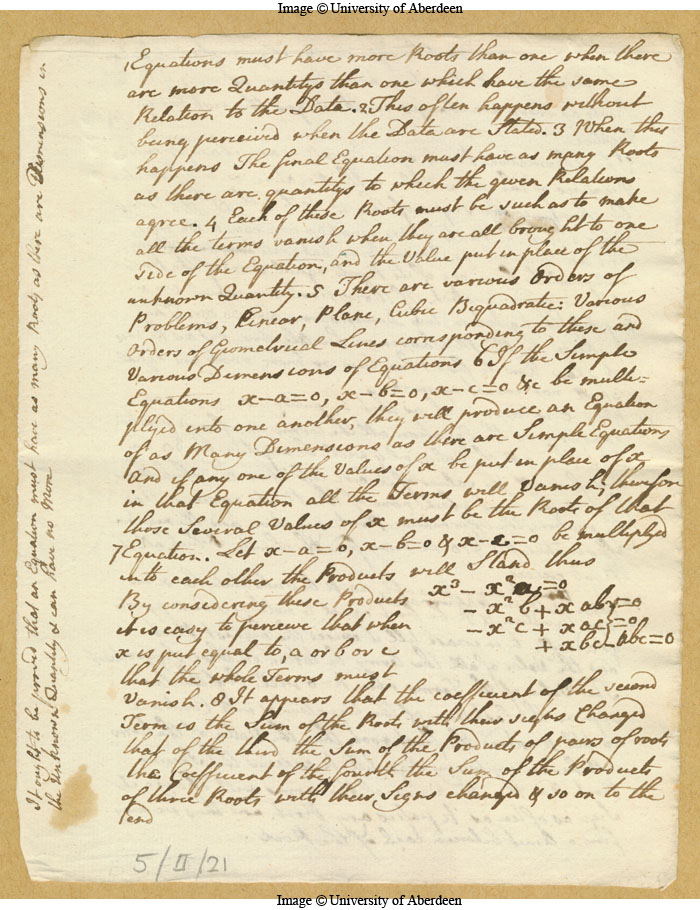 Image © University of Aberdeen
1 Equations must have more Roots than one when there
are more Quantitys than one which have the same
Relation to the Data. 2 This often happens without
being perceived when the Data are Stated. 3 When this
happens The final Equation must have as many Roots
as there are quantitys to which the given Relations
agree. 4 Each of these Roots must be such as to make
all the terms vanish when they are all brought to one
side of the Equation, and the Value put in place of the
unknown Quantity. 5 There are various Orders of
Problems, Linear, Plane, Cubic Biquadratic: Various
Orders of Geometrical Lines corresponding to these and
Various Dimensions of Equations 6 If the Simple
Equations x-a=0, x-b=0, x-c=0 &c be multi=
plyed into one another, they will produce an Equation
of as Many Dimensions as there are Simple Equations
And if any one of the Values of x be put in place of x
in that Equation all the Terms will Vanish, therefore
those Several Values of x must be the Roots of that
7 Equation. Let x-a=0, x-b=0 & x-c=0 be multiplyed
into each other the Products will Stand thus
x³ - x²a =0
By considering these Products - x²b + xab =0
it is easy to perceive that when - x²c + xac =0
x is put equal to, a or b or c + xbc - abc=0
that the whole Terms must
Vanish. 8 It appears that the coefficient of the second
Term is the Sum of the Roots with their signs Changed
that of the third the Sum of the Products of pairs of roots
the Coefficient of the fourth the Sum of the Products
of three Roots with their Signs changed & so on to the
end
It ought to be proved that an Equation must have as many Roots as there are Dimensions in
the Unknown Quantity & can have no More
5/II/21
Image © University of Aberdeen